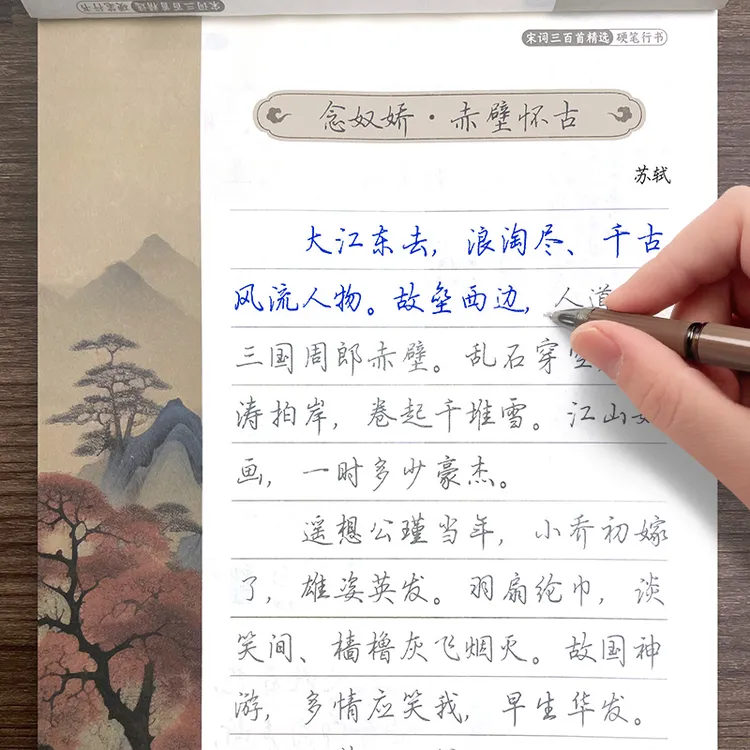 宋词三百首精选 硬笔行书
念奴娇·赤壁怀古
苏轼
大江东去，浪淘尽、千古
风流人物。故垒西边，人道
三国周郎赤壁。乱石穿空
涛拍岸，卷起千堆雪。江山如
画，一时多少豪杰。
遥想公瑾当年，小乔初嫁
了，雄姿英发。羽扇纶巾，谈
笑间、樯橹灰飞烟灭。故国神
游，多情应笑我，早生华发。